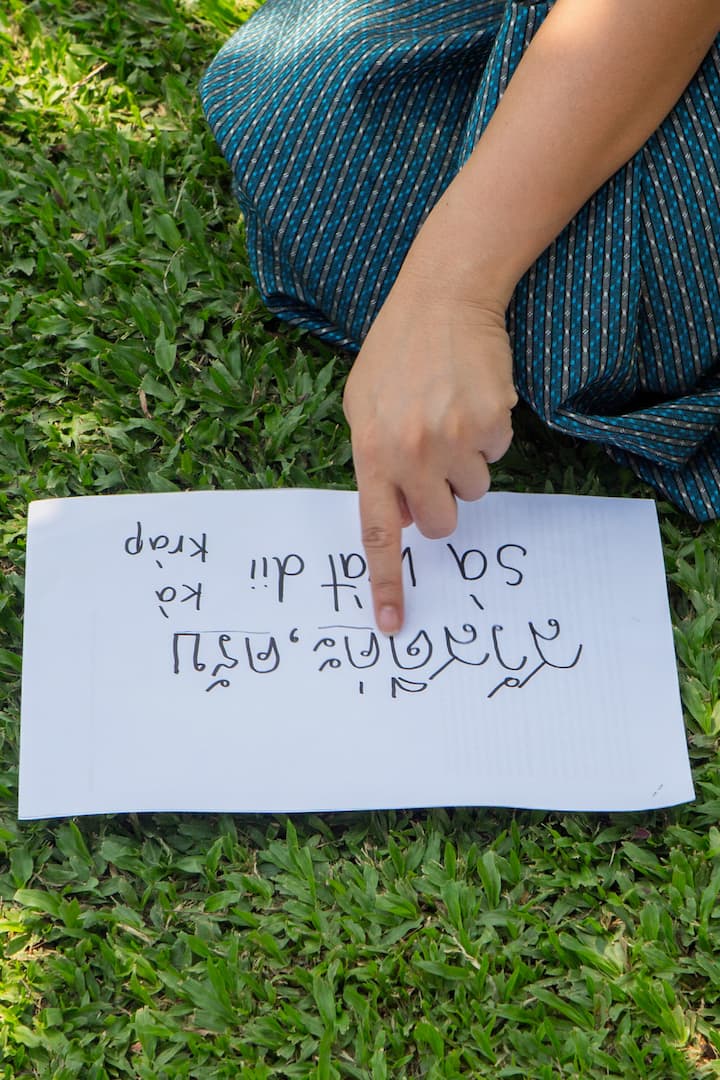 สวัสดีค่ะ, ครับ
Sà wàt dii kà
kràp